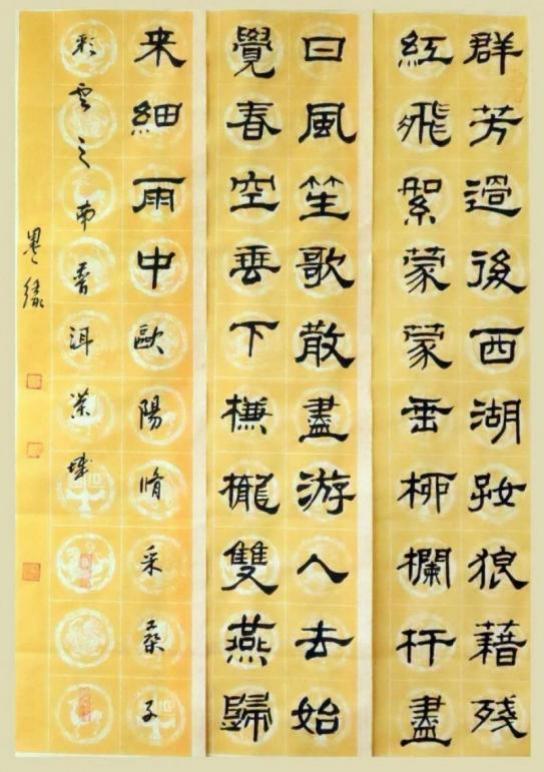 群芳過後西湖好狼藉殘
紅飛絮蒙蒙垂柳欄杆盡
日風笙歌散盡游人去始
覺春空垂下槏櫳雙燕歸
来細雨中歐陽脩采桑子
彩雲之南普洱茶城
墨